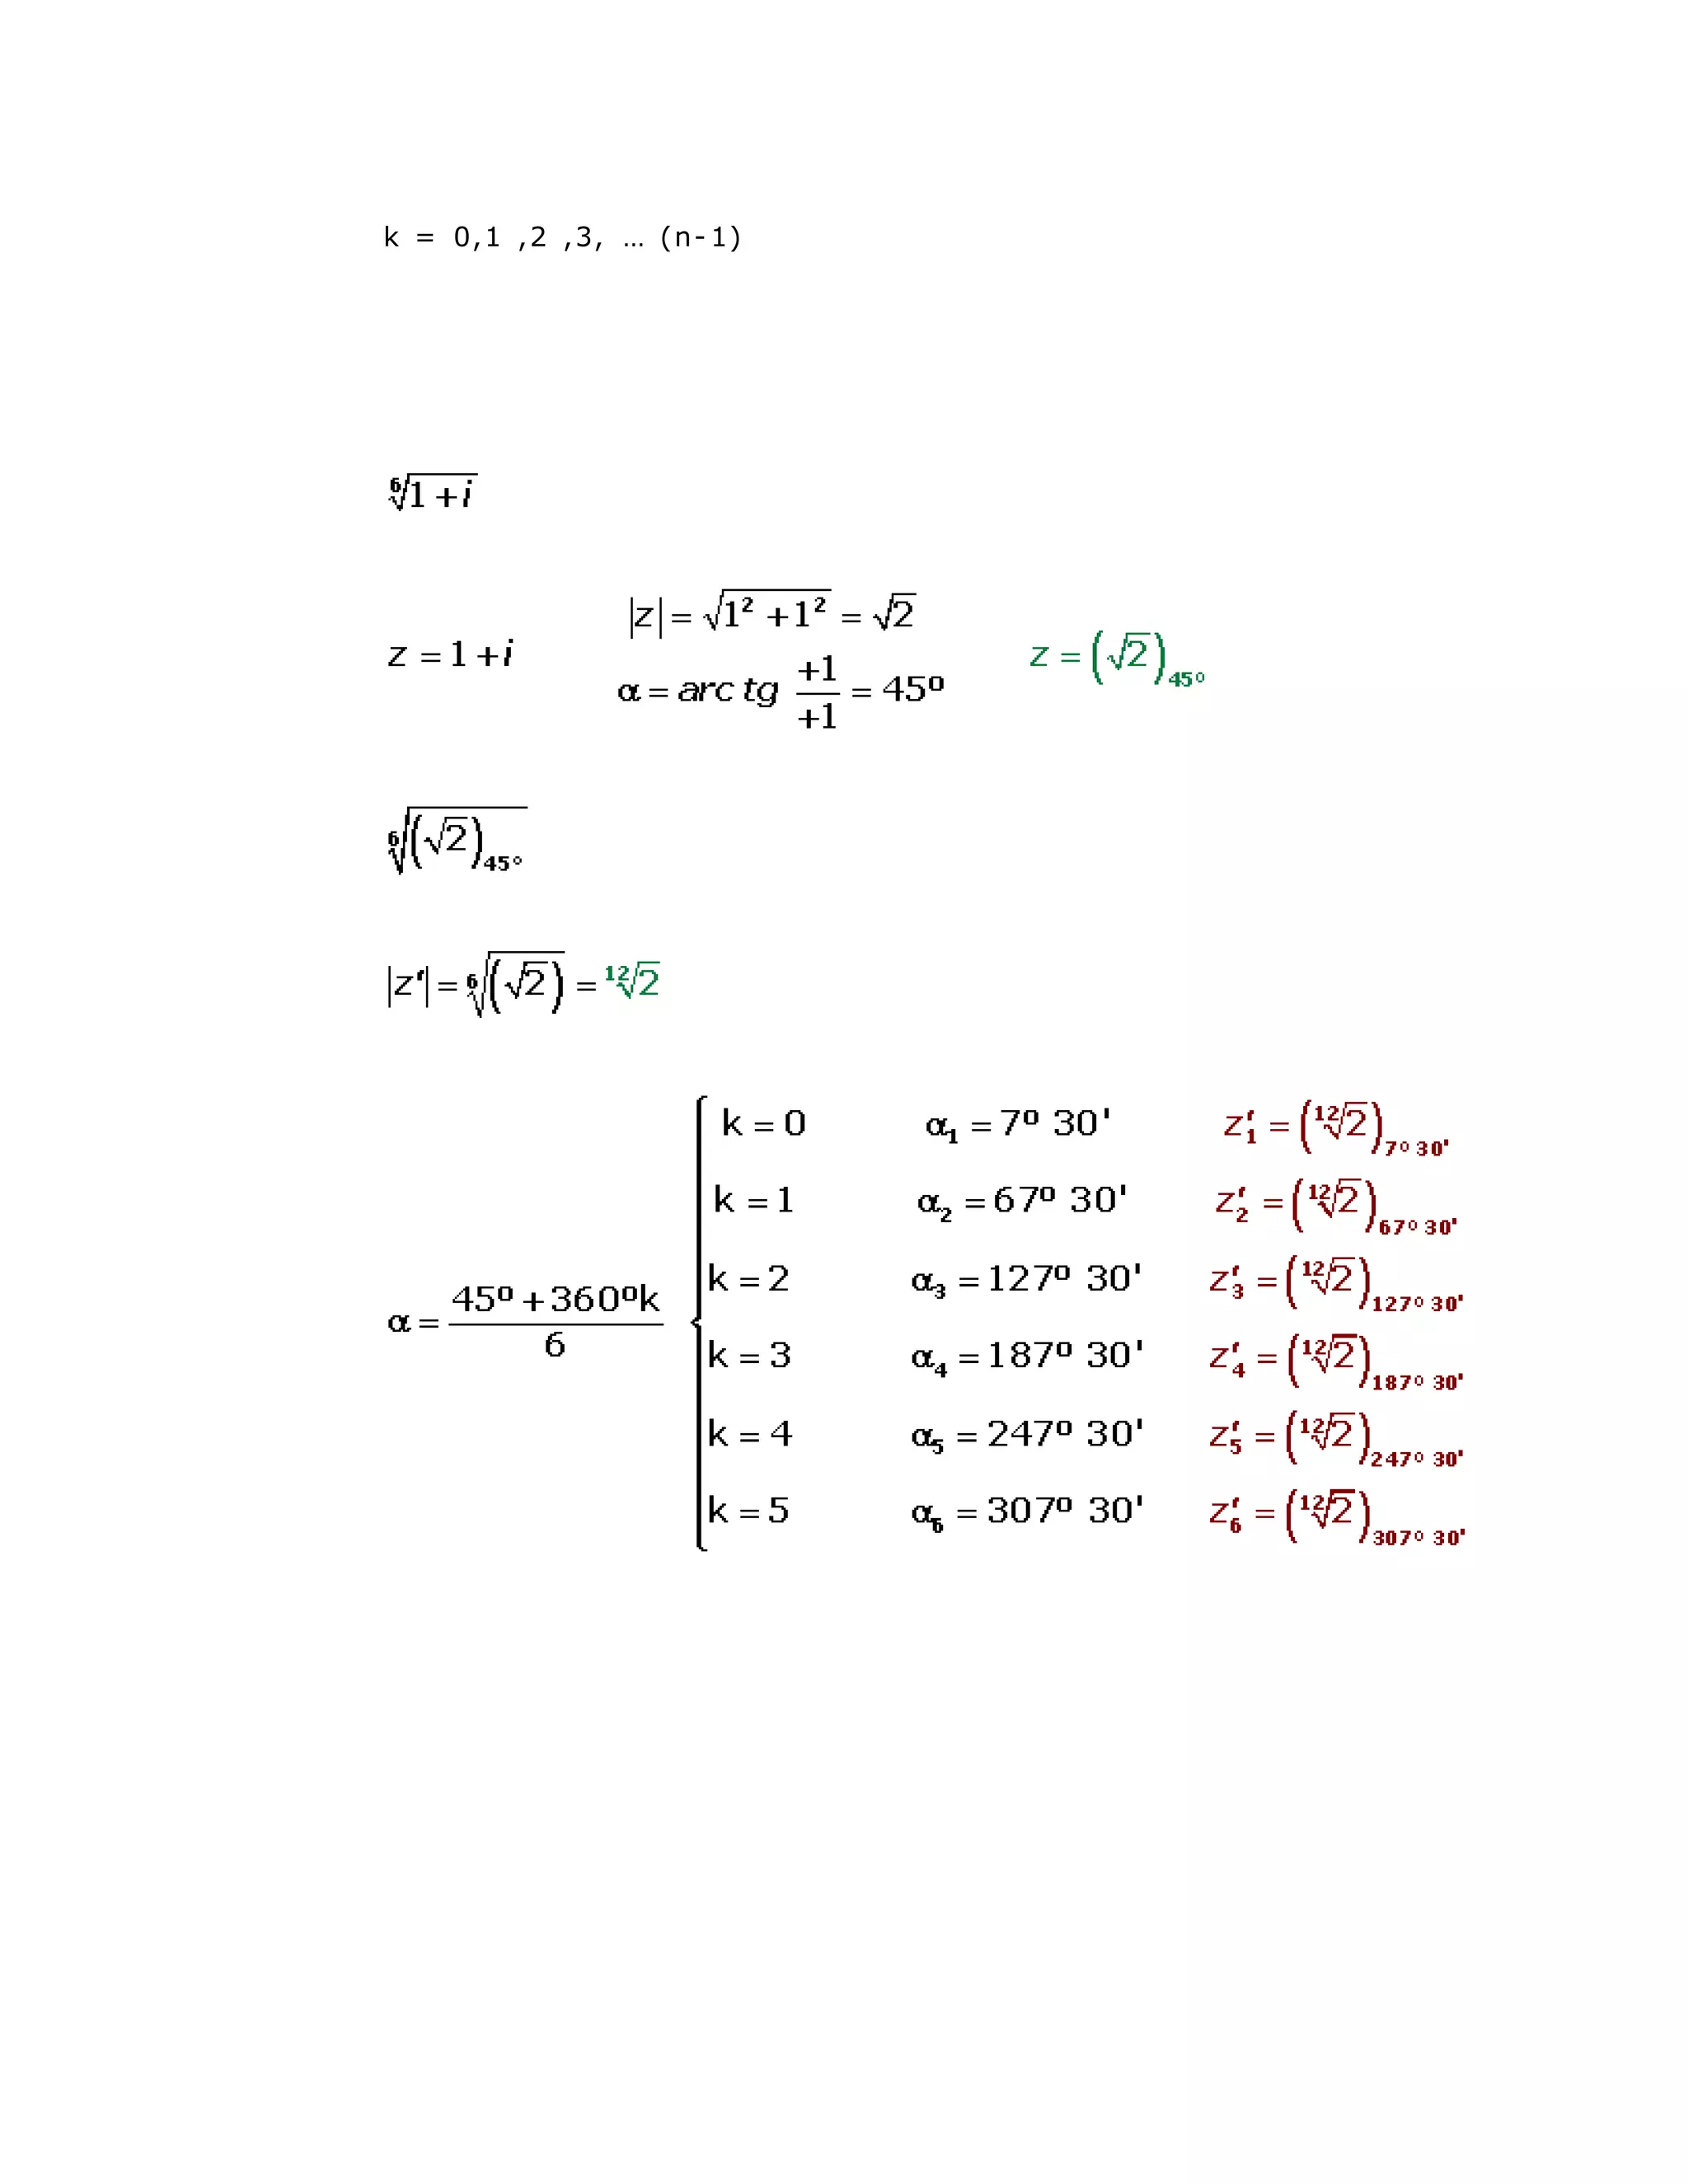 k = 0,1 ,2 ,3, … (n-1)
⁶√(1+i)
z = 1+i |z| = √(1² +1²) = √2 α = arc tg +1/+1 = 45º z = (√2)₄₅°
⁶√((√2)₄₅°)
|z'| = ⁶√(√2) = ¹²√2
α = (45º +360ºk)/6
k = 0 α₁ = 7º 30' z'₁ = (¹²√2)7º 30'
k = 1 α₂ = 67º 30' z'₂ = (¹²√2)67º 30'
k = 2 α₃ = 127º 30' z'₃ = (¹²√2)127º 30'
k = 3 α₄ = 187º 30' z'₄ = (¹²√2)187º 30'
k = 4 α₅ = 247º 30' z'₅ = (¹²√2)247º 30'
k = 5 α₆ = 307º 30' z'₆ = (¹²√2)307º 30'